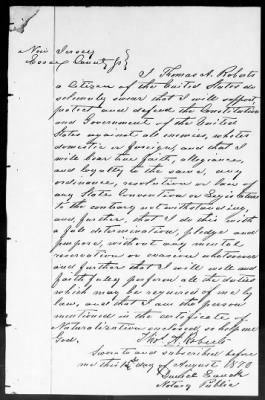 New Jersey
Essex County ss }
I Thomas A. Roberts
a Citizen of the United States do
solemnly swear that I will support,
protect and defend the Constitution
and Government of the United
States against all enemies, whether
domestic or foreign, and that I
will bear true faith, allegiance,
and loyalty to the same, any
ordinance, resolution or law of
any State Convention or Legislature
to the contrary notwithstanding,
and further, that I do this with
a full determination, pledge and
purpose, without any mental
reservation or evasion whatsoever
and further that I will well and
faithfully perform all the duties
which may be required of me by
law, and that I am the person
mentioned in the certificate of
Naturalization enclosed so help me
God,
Thos. A. Roberts
Sworn and subscribed before
me this day of August 1870
Notary Public